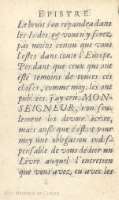 EPISTRE
Le bruit s'en répandra dans
les Indes, & y venir y fera,
pas moins connu que vous
l'estes dans toute l'Europe.
Pendant que ceux qui ont
esté témoins de toutes ces
choses, comme moy, les ont
publiées, j'ay crû, MON-
SEIGNEUR, non seu-
lement les devoir écrire,
mais aussi que c'estoit pour
moy une obligation indis-
pensable de vous dédier un
Livre, auquel l'entretien
que vous avez, eu avec les